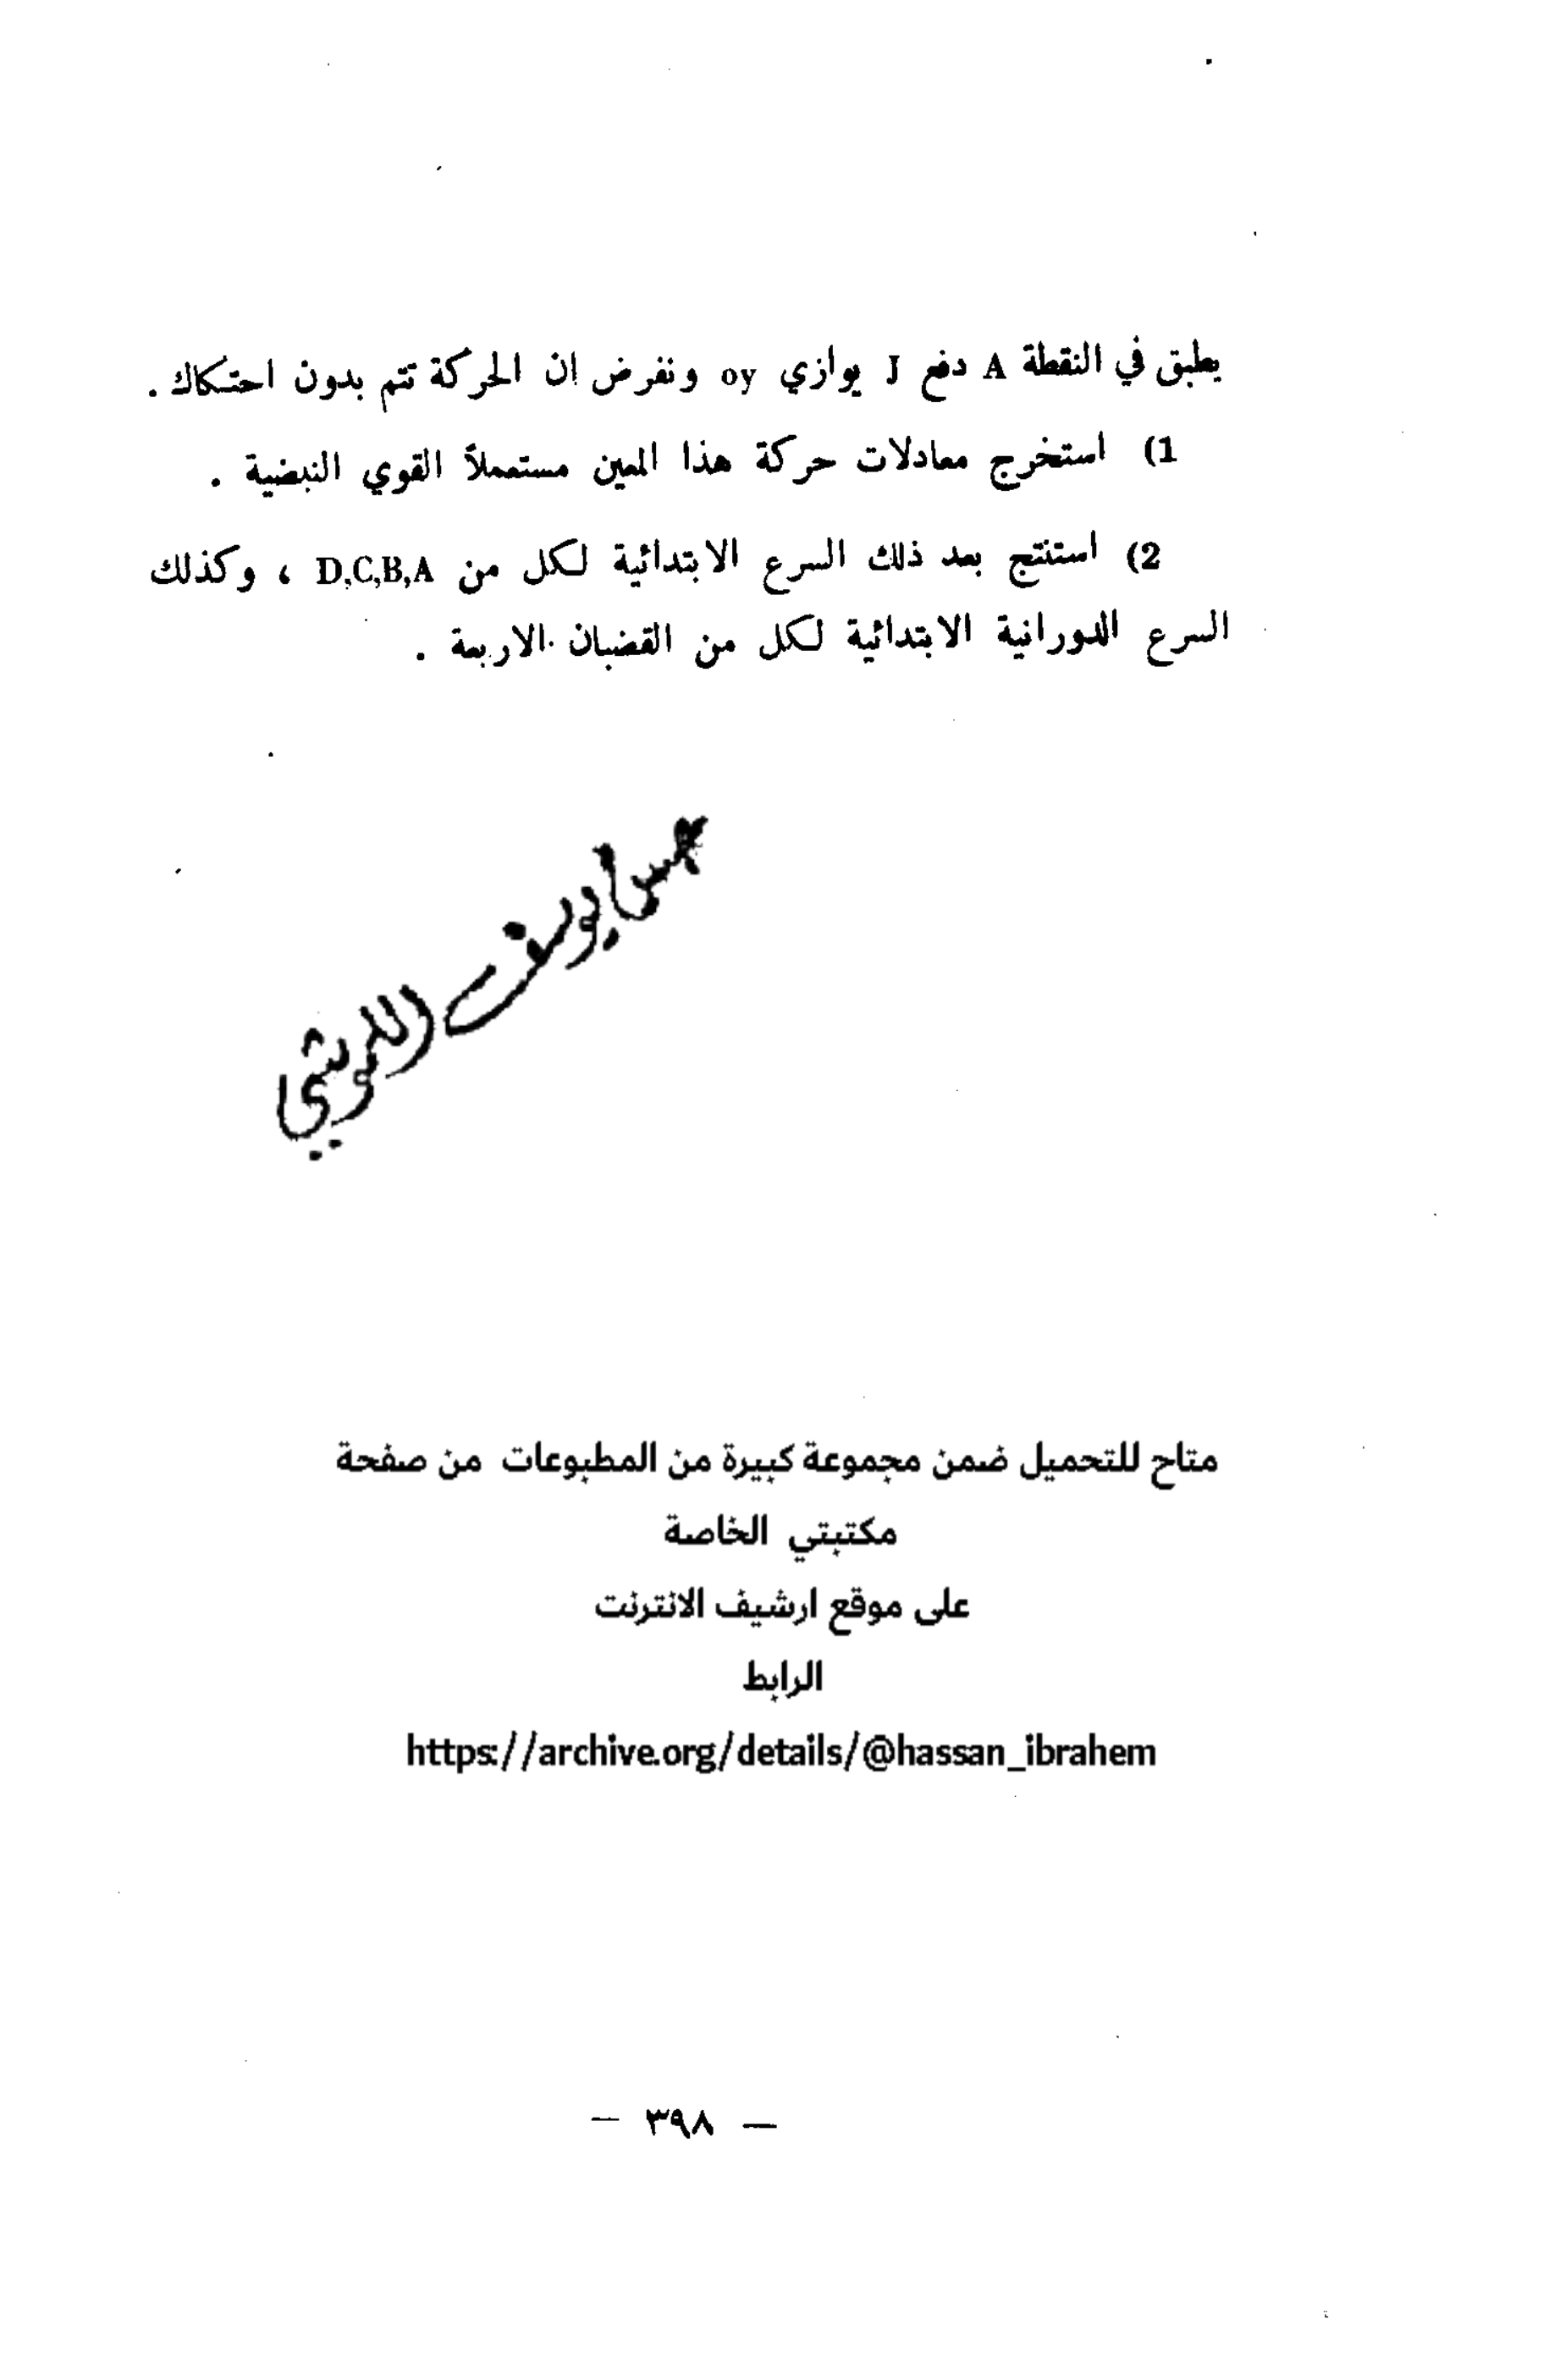 يطبق في النقطة A دفع J يوازي oy ونفرض ان الحركة تتم بدون احتكاك .
1) استخرج معادلات حركة هذا المعين مستعملاً القوي النبضية .
2) استنتج بعد ذلك السرع الابتدائية لكل من D,C,B,A ، وكذلك
السرع الدورانية الابتدائية لكل من القضبان الاربعة .
يوسف
متاح للتحميل ضمن مجموعة كبيرة من المطبوعات من صفحة
مكتبتي الخاصة
على موقع ارشيف الانترنت
الرابط
https://archive.org/details/@hassan_ibrahem
— ٣٩٨ —